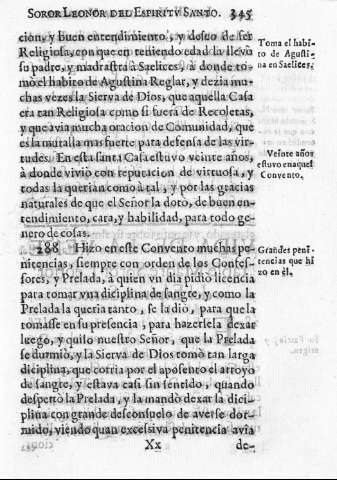 SOROR LEONOR DEL ESPIRITV SANTO. 345
cion, y buen entendimiento, y deseo de ser
Religiosa, con que en teniendo edad la llevò
su padre, y madrastra à Saelices, à donde to-
mò el habito de Agustina Reglar, y dezia mu-
chas vezes la Sierva de Dios, que aquella Casa
era tan Religiosa como si fuera de Recoletas,
y que avia mucha oracion de Comunidad, que
es la muralla mas fuerte para defensa de las vir-
tudes. En esta santa Casa estuvo veinte años,
à donde vivió con reputacion de virtuosa, y
todas la querian como à tal, y por las gracias
naturales de que el Señor la doto, de buen en-
tendimiento, cara, y habilidad, para todo ge-
nero de cosas.
288 Hizo en este Convento muchas pe-
nitencias, siempre con orden de los Confes-
sores, y Prelada, à quien vn dia pidiò licencia
para tomar vna diciplina de sangre, y como la
Prelada la queria tanto, se la diò, para que la
tomasse en su presencia, para hazersela dexar
luego, y quiso nuestro Señor, que la Prelada
se durmiò, y la Sierva de Dios tomò tan larga
diciplina, que corria por el aposento el arroyo
de sangre, y estava casi sin sentido, quando
despertò la Prelada, y la mandò dexar la dici-
plina con grande desconsuelo de averse dor-
mido, viendo quan excessiva penitencia avia
Xx de-
Toma el habi-
to de Agusti-
na en Saelices.
Veinte años
estuvo en aquel
Convento.
Grandes peni-
tencias que hi
zo en èl.